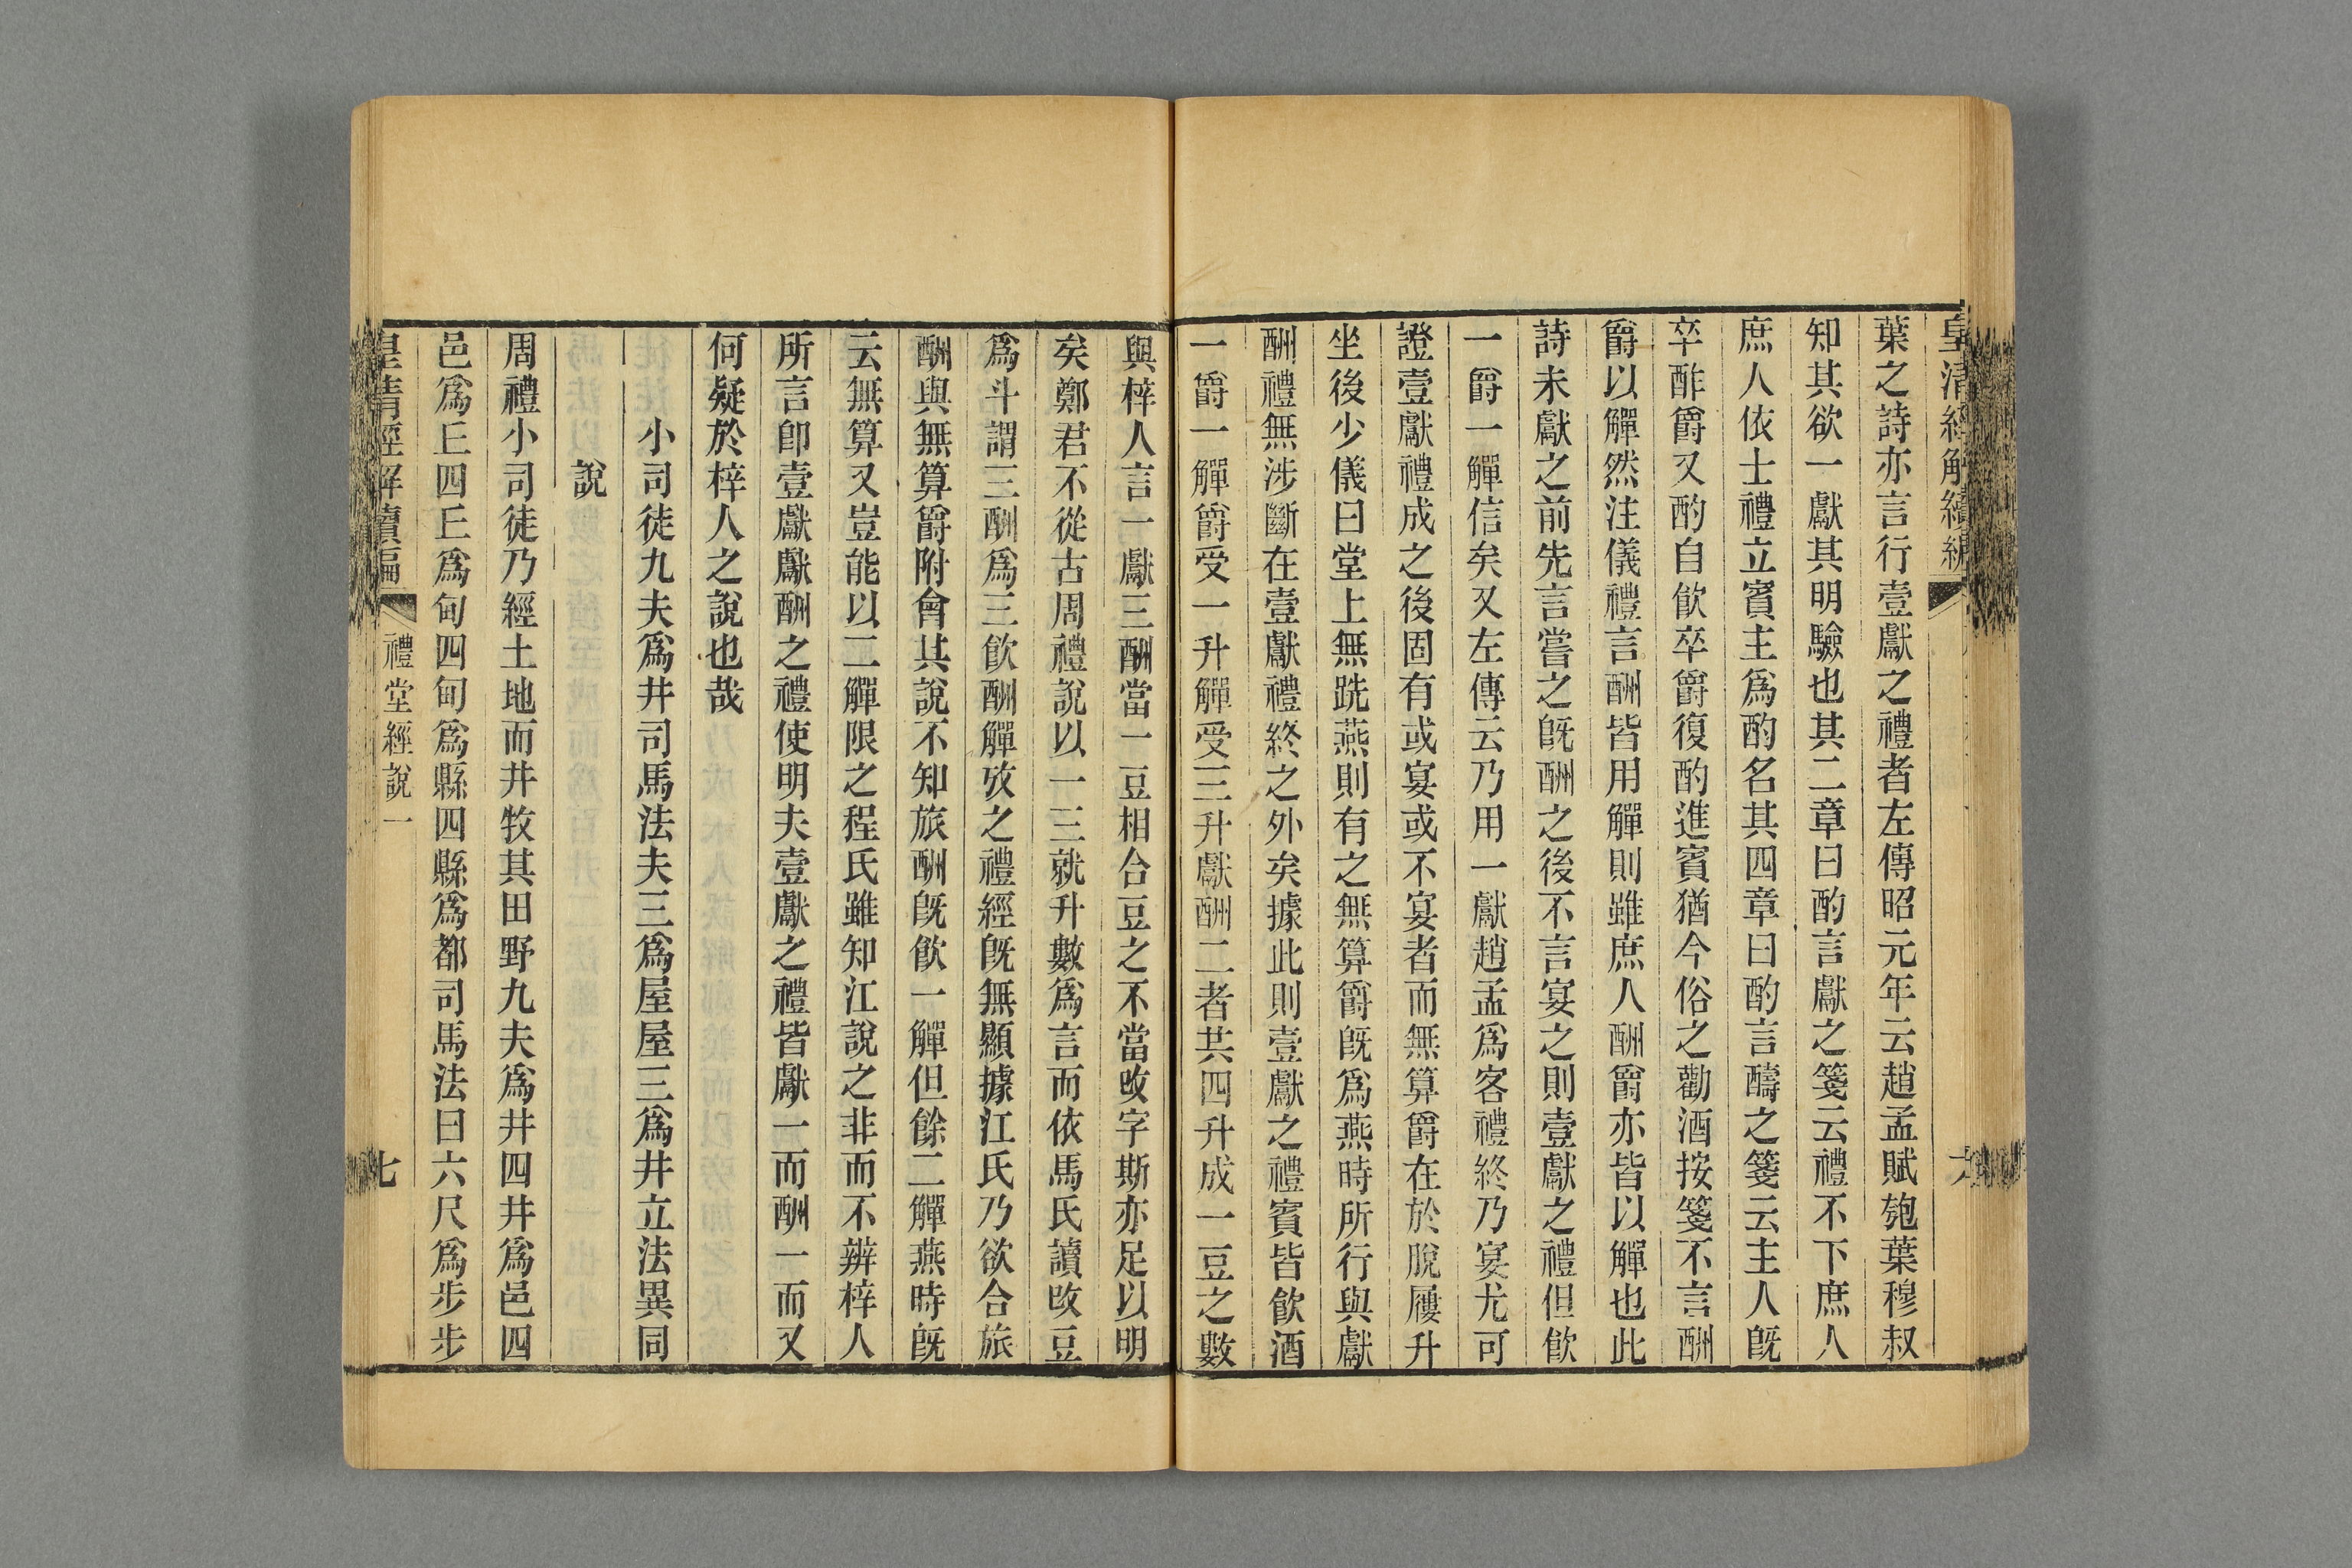 皇清經解續編
六
葉之詩亦言行壹獻之禮者左傳昭元年云趙孟賦匏葉穆叔
知其欲一獻其明驗也其二章曰酌言獻之箋云禮不下庶人
庶人依士禮立賓主爲酌名其四章曰酌言醻之箋云主人旣
卒酢爵又酌自飮卒爵復酌進賓猶今俗之勸酒按箋不言酬
爵以觶然注儀禮言酬皆用觶則雖庶人酬爵亦皆以觶也此
詩未獻之前先言嘗之旣酬之後不言宴之則壹獻之禮但飮
一爵一觶信矣又左傳云乃用一獻趙孟爲客禮終乃宴尤可
證壹獻禮成之後固有或宴或不宴者而無算爵在於脫屨升
坐後少儀曰堂上無跣燕則有之無算爵旣爲燕時所行與獻
酬禮無涉斷在壹獻禮終之外矣據此則壹獻之禮賓皆飮酒
一爵一觶爵受一升觶受三升獻酬二者共四升成一豆之數
與梓人言一獻三酬當一豆相合豆之不當改字斯亦足以明
矣鄭君不從古周禮說以一三就升數爲言而依馬氏讀改豆
爲斗謂三酬爲三飮酬觶攷之禮經旣無顯據江氏乃欲合旅
酬與無算爵附會其說不知旅酬旣飮一觶但餘二觶燕時旣
云無算又豈能以二觶限之程氏雖知江說之非而不辨梓人
所言卽壹獻獻酬之禮使明夫壹獻之禮皆獻一而酬一而又
何疑於梓人之說也哉
小司徒九夫爲井司馬法夫三爲屋屋三爲井立法異同
說
周禮小司徒乃經土地而井牧其田野九夫爲井四井爲邑四
邑爲丘四丘爲甸四甸爲縣四縣爲都司馬法曰六尺爲步步
皇清經解續編
禮堂經說一
七